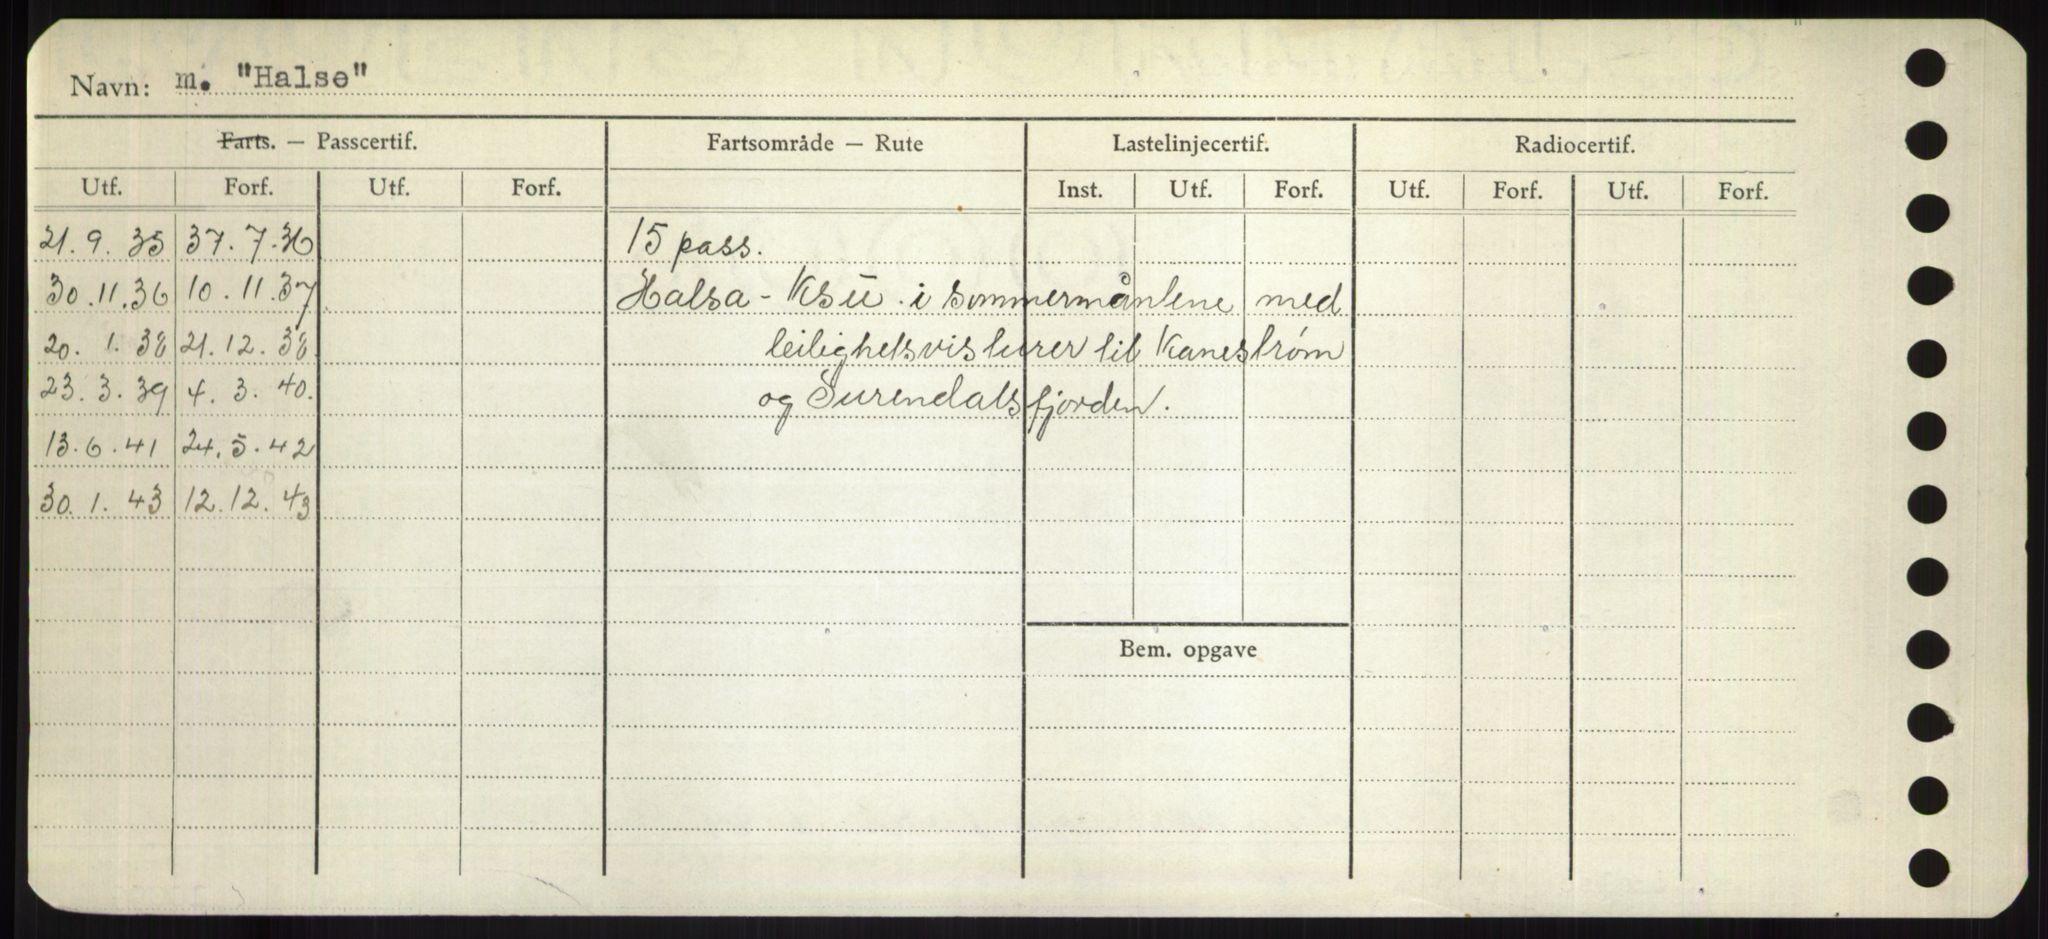 Navn: m. "Halse"
Farts. — Passcertif. Fartsområde — Rute Lastelinjecertif. Radiocertif.
Utf. Forf. Utf. Forf. Inst. Utf. Forf. Utf. Forf. Utf. Forf.
21. 9. 35 37. 7. 36 15 pass.
30. 11. 36 10. 11. 37 Halsa - KSU. i sommermåntene med
20. 1. 38 21. 12. 38 leilighetsvis turer til Kanestrøm
23. 3. 39 4. 3. 40. og Surendalsfjorden.
13. 6. 41 24. 5. 42
30. 1. 43 12. 12. 43
Bem. opgave